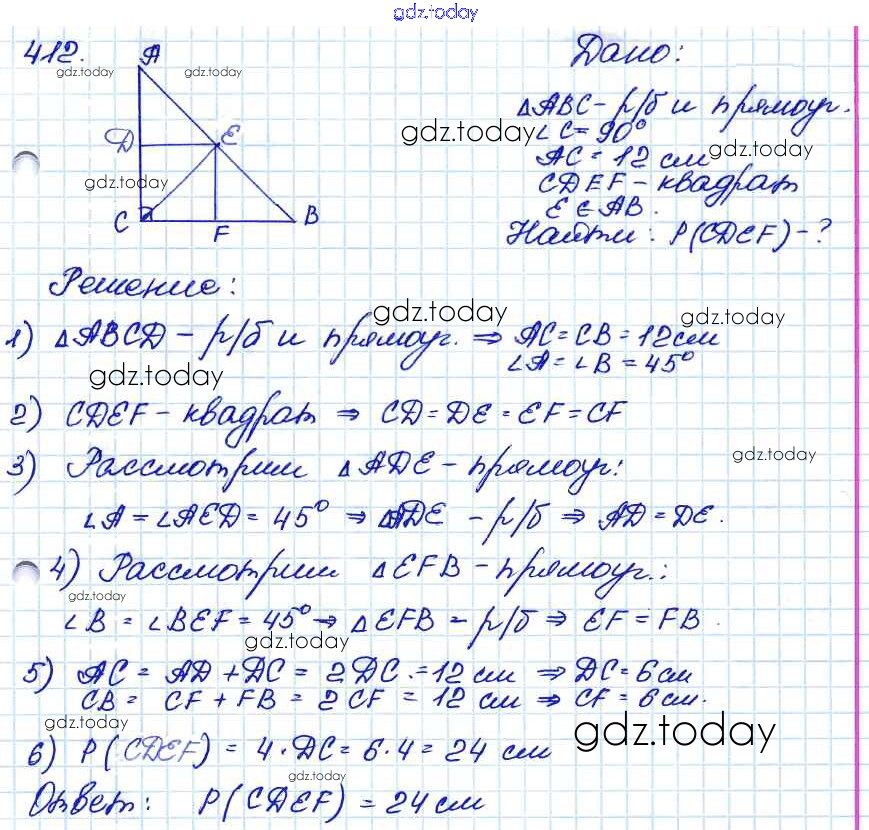 gdz.today
412.
Дано:
A
gdz.today gdz.today
D E
gdz.today
C F B
△ABC - р/б и прямоуг.
∠C = 90°
gdz.today gdz.today
AC = 12 см
CDEF - квадрат
E ∈ AB.
Найти: P(CDEF) - ?
Решение:
gdz.today gdz.today
1) △ABCD - р/б и прямоуг. ⇒ AC = CB = 12 см
∠A = ∠B = 45°
gdz.today
2) CDEF - квадрат ⇒ CD = DE = EF = CF
gdz.today
3) Рассмотрим △ADE - прямоуг:
∠A = ∠AED = 45° ⇒ △ADE - р/б ⇒ AD = DE.
4) Рассмотрим △EFB - прямоуг.:
gdz.today
∠B = ∠BEF = 45° ⇒ △EFB - р/б ⇒ EF = FB.
gdz.today
5) AC = AD + DC = 2DC = 12 см ⇒ DC = 6 см
CB = CF + FB = 2CF = 12 см ⇒ CF = 6 см.
gdz.today gdz.today
6) P(CDEF) = 4·DC = 6·4 = 24 см
gdz.today
Ответ: P(CDEF) = 24 см